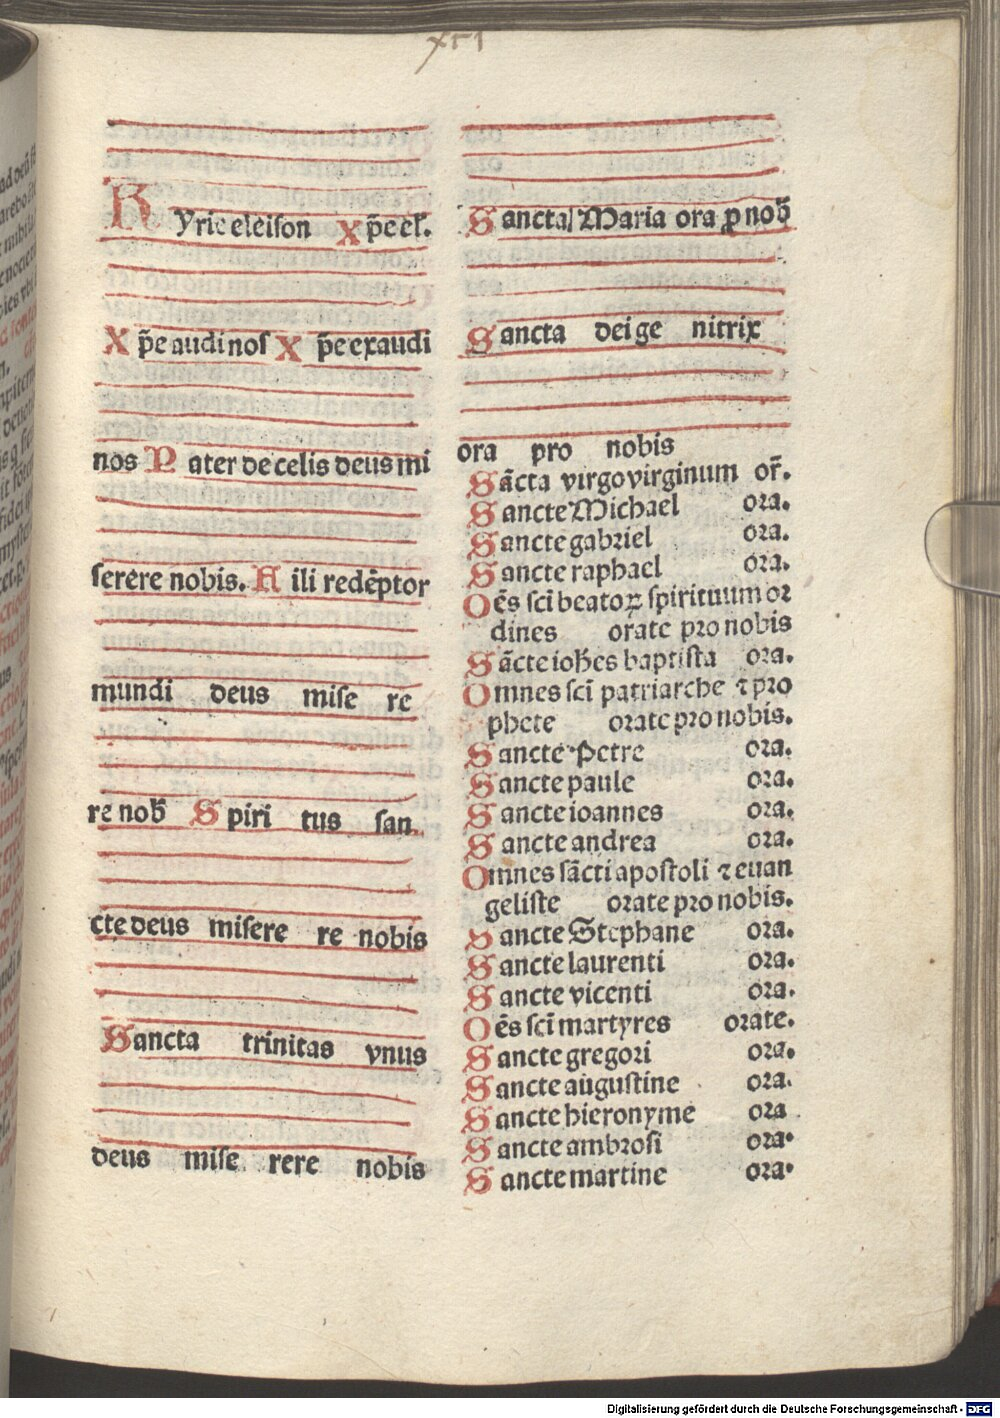 xv1
Kyrie eleison xp̄e el'.
Xp̄e audi nos Xp̄e exaudi
nos Pater de celis deus mi
serere nobis. Fili redēptor
mundi deus mise re
re nob̄ Spiri tus san
cte deus misere re nobis
Sancta trinitas vnus
deus mise rere nobis
Sancta Maria ora ꝓ nob̄
Sancta dei ge nitrix
ora pro nobis
Sācta virgo virginum or̄.
Sancte Michael ora.
Sancte gabriel ora.
Sancte raphael ora.
Oēs sc̄i beatoꝝ spirituum or
dines orate pro nobis
Sācte ioh̄es baptista ora.
Omnes sc̄i patriarche ⁊ pro
phete orate pro nobis.
Sancte Petre ora.
Sancte paule ora.
Sancte ioannes ora.
Sancte andrea ora.
Omnes sācti apostoli ⁊ euan
geliste orate pro nobis.
Sancte Stephane ora.
Sancte laurenti ora.
Sancte vicenti ora.
Oēs sc̄i martyres orate.
Sancte gregori ora.
Sancte augustine ora.
Sancte hieronyme ora
Sancte ambrosi ora.
Sancte martine ora.
Digitalisierung gefördert durch die Deutsche Forschungsgemeinschaft - DFG